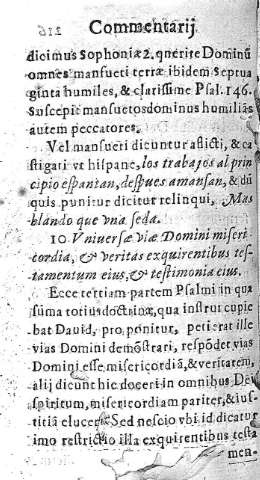 216 Commentarij
dicimus Sophoniæ 2. querite Dominũ
omnes mansueti terræ ibidem Septua
ginta humiles, & clarissime Psal. 146.
Suscepit mansuetos dominus humiliãs
autem peccatores.
Vel mansueti dicuntur aflicti, & ca
stigati vt hispane, los trabajos al prin
cipio espantan, despues amansan, & dũ
quis punitur dicitur relinqui, Mas
blando que vna seda.
10 Vniuersæ viæ Domini miseri-
cordia, & veritas exquirentibus tes-
tamentum eius, & testimonia eius.
Ecce tertiam partem Psalmi in qua
sũma totius doctrinæ, qua instrui cupie
bat Dauid, proponitur, petierat ille
vias Domini demõstrari, respõdet vias
Domini esse misericordiã, & veritatem,
alij dicunt hic doceri in omnibus Dei
spiritum, misericordiam pariter, & ius-
titiã elucere Sed nescio vbi id dicatur
imo restrictio illa exquirentibus testa
men-